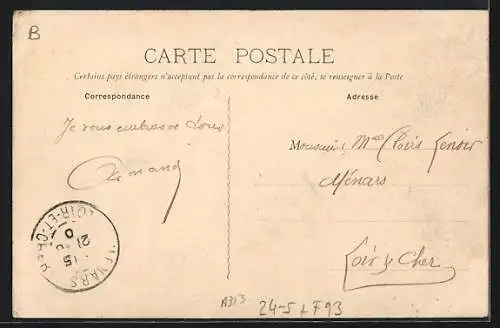 B
CARTE POSTALE
Certains pays étrangers n'acceptent pas la correspondance de ce côté, se renseigner à la Poste
Correspondance
Adresse
Je vous embrasse tous
Armand
Monsieur, Mme Clovis Lenoir
Ménars
Loir & Cher
MENARS
LOIR-ET-CHER
21
A313
24-5 + F93